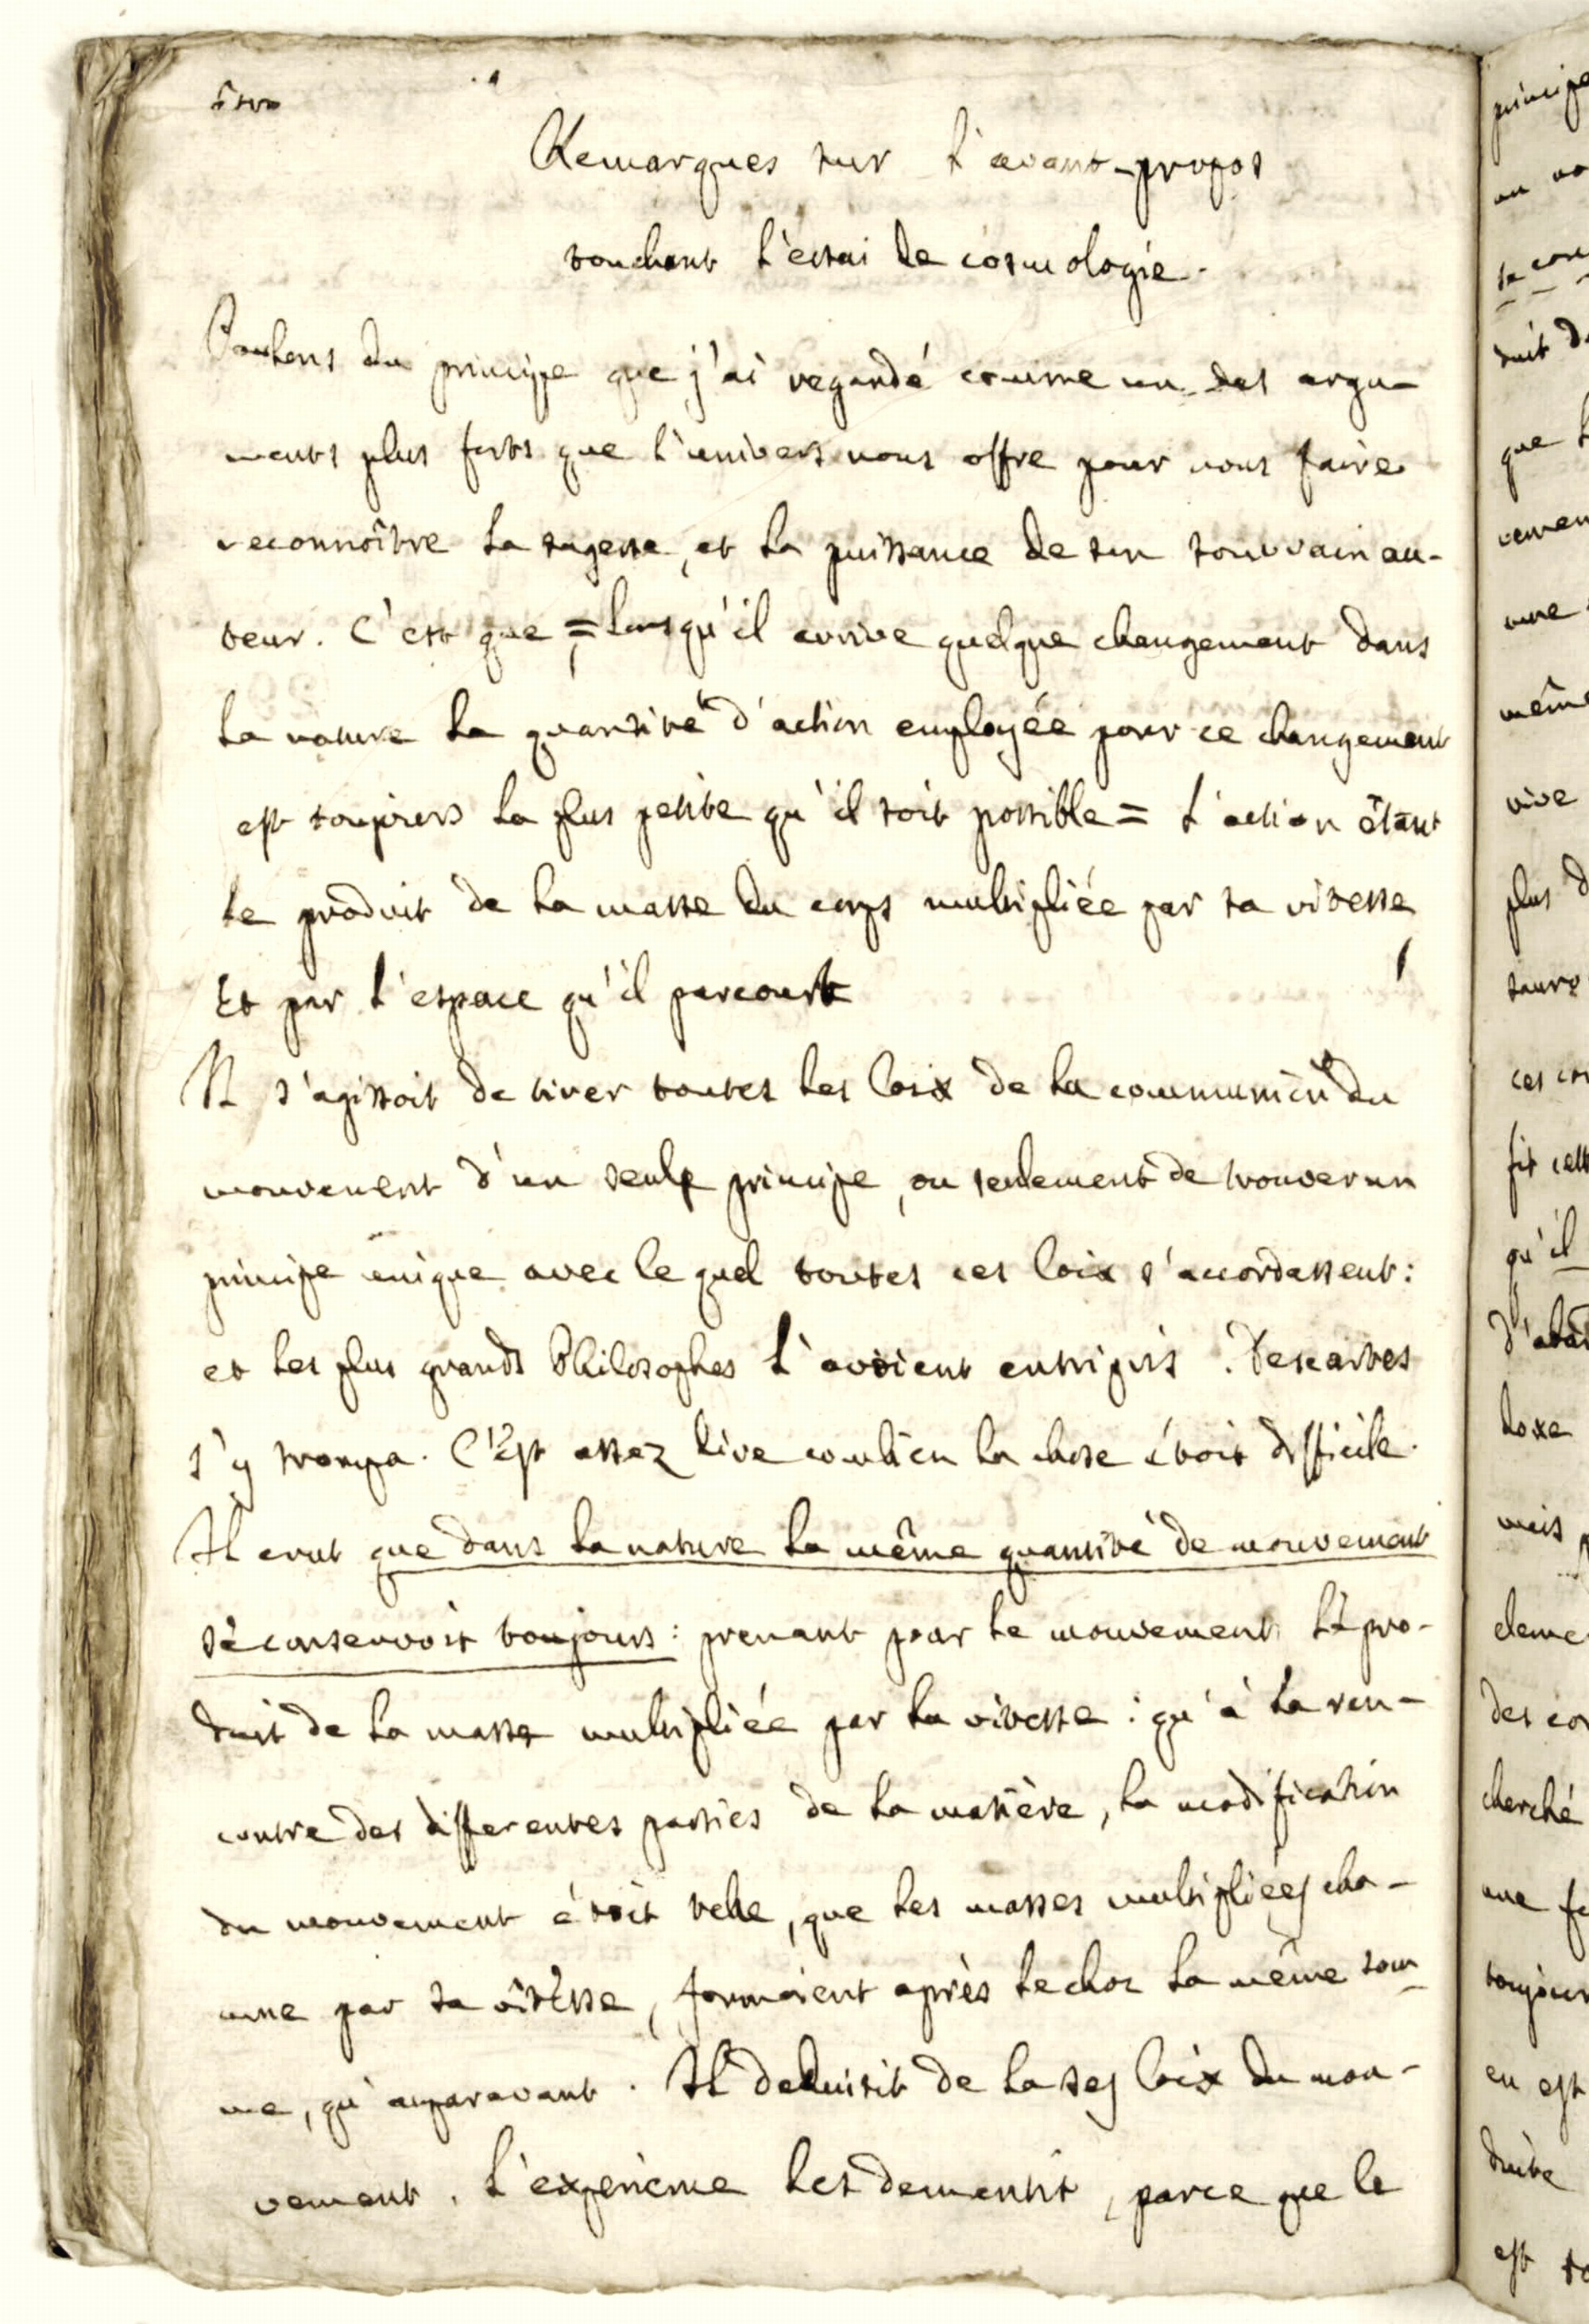 Remarques sur l'avant-propos
touchant l'essai de cosmologie.
Partons du principe que j'ai regardé comme un des argu-
ments plus forts que l'univers nous offre pour nous faire
reconnoître la sagesse, et la puissance de son souvrain au-
teur. C'est que = lorsqu'il arrive quelque changement dans
la nature la quantité d'action employée pour ce changement
est toujours la plus petite qu'il soit possible = l'action étant
le produit de la masse du corps multipliée par sa vitesse,
et par l'espace qu'il parcourt
Il s'agissoit de tirer toutes les loix de la communion du
mouvement d'un seule principe, ou seulement de trouver un
principe unique avec le quel toutes ces loix s'accordassent:
et les plus grands Philosophes l'avoient entripris. Descartes
s'y trompa. C'est assez dire combien la chose étoit difficile.
Il crut que dans la nature la même quantité de mouvement
se conservoit toujours: prenant pour le mouvement le pro-
duit de la masse multipliée par la vitesse: qu'à la ren-
contre des differentes parties de la matière, la modification
du mouvement étoit telle, que les masses multipliées cha-
cune par sa vitesse, formoient après le choc la même som-
me, qu'auparavant. Il deduisit de la ses loix du mou-
vement. L'experience les dementit, parce que le
principe
que
même
vive
plus
qu'il
mais
des
cherché
une
en est
est